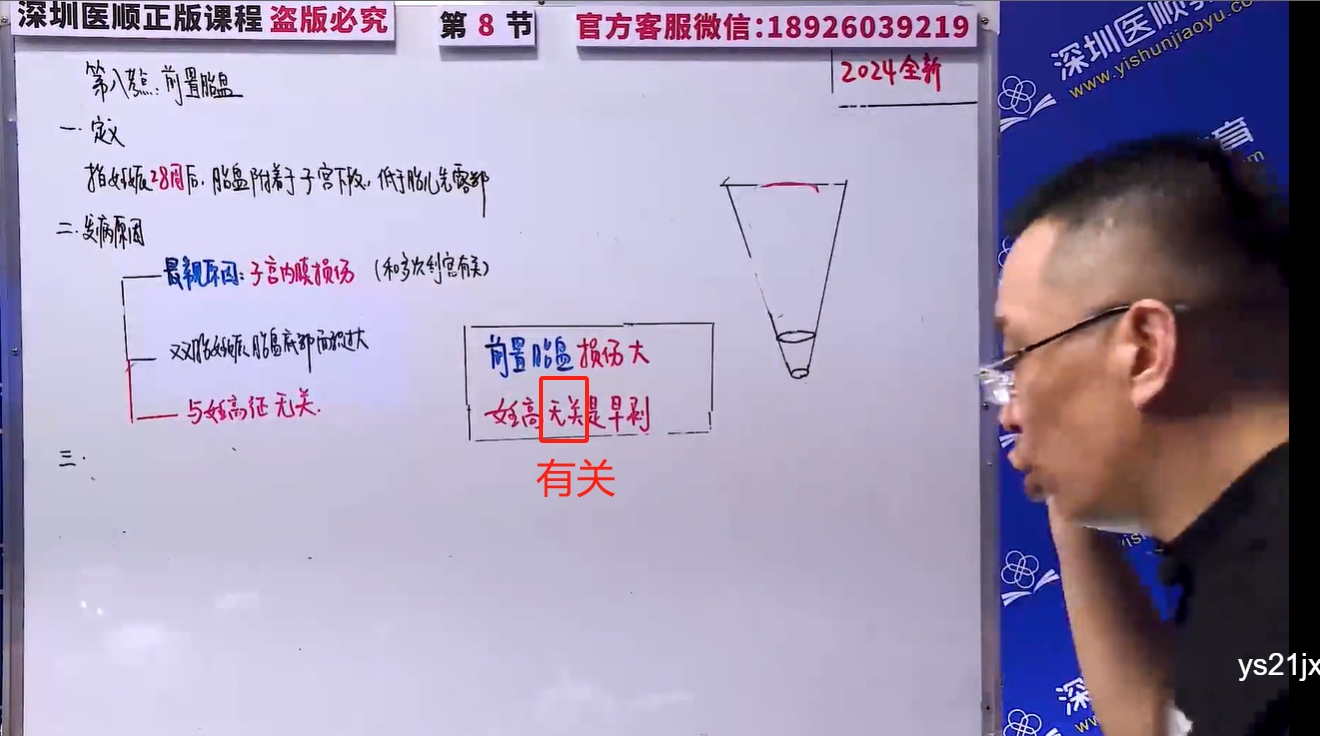 深圳医顺正版课程 盗版必究
第 8 节
官方客服微信:18926039219
2024全新
深圳医顺教
www.yishunjiaoyu.co
育
第八考点:前置胎盘
一.定义
指妊娠28周后,胎盘附着于子宫下段,低于胎儿先露部
二.发病原因
最常见原因:子宫内膜损伤 (和多次刮宫有关)
双胎妊娠,胎盘底部面积过大
与妊高征无关.
前置胎盘损伤大
妊高无关是早剥
有关
三.
深
ys21jx